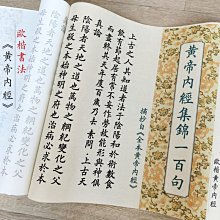 黄帝内經集錦一百句
摘抄自《全本黄帝内經》
歐楷書法
《黄帝内經》
上古之人其知道者法于陰陽和於術數食
飲有節起居有常不妄作勞故能形與神俱
而盡終其天年度百歲乃去 素問·上古天
陰陽者天地之道也萬物之綱紀變化之父
母生殺之本始神明之府也治病必求於本